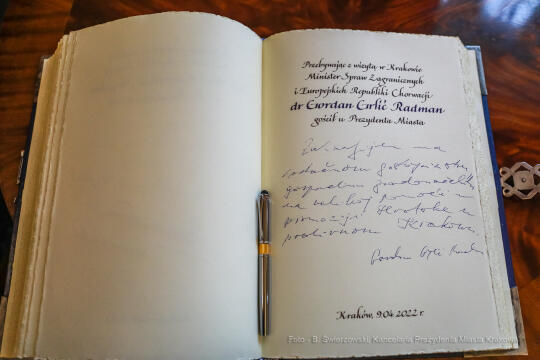 Przebywając z wizytą w Krakowie
Minister Spraw Zagranicznych
i Europejskich Republiki Chorwacji
dr Gordan Grlić Radman
gościł u Prezydenta Miasta
Zahvaljujem na
srdačnom gostoprimstvu
gospodinu gradonačelniku
na velikoj pomoći u
promociji Hrvatske u
predivnom Krakowu.
Gordan Grlić Radman
Kraków, 9.04.2022 r.
Foto - B. Świerzowski, Kancelaria Prezydenta Miasta Krakowa